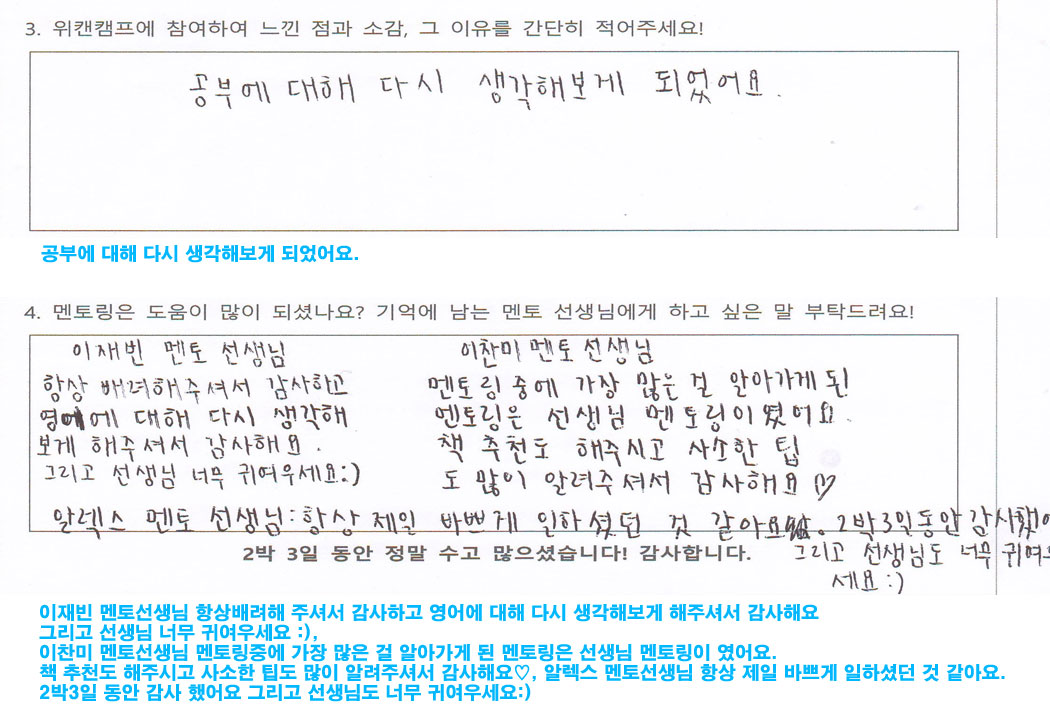 3. 위캔캠프에 참여하여 느낀 점과 소감, 그 이유를 간단히 적어주세요!
공부에 대해 다시 생각해보게 되었어요.
공부에 대해 다시 생각해보게 되었어요.
4. 멘토링은 도움이 많이 되셨나요? 기억에 남는 멘토 선생님에게 하고 싶은 말 부탁드려요!
이재빈 멘토 선생님
항상 배려해주셔서 감사하고
영어에 대해 다시 생각해
보게 해주셔서 감사해요.
그리고 선생님 너무 귀여우세요:)
이찬미 멘토 선생님
멘토링 중에 가장 많은 걸 알아가게 된
멘토링은 선생님 멘토링이 였어요.
책 추천도 해주시고 사소한 팁
도 많이 알려주셔서 감사해요♡
알렉스 멘토 선생님: 항상 제일 바쁘게 일하셨던 것 같아요. 2박3일동안 감사했어
그리고 선생님도 너무 귀여우
세요:)
2박 3일 동안 정말 수고 많으셨습니다! 감사합니다.
이재빈 멘토선생님 항상배려해 주셔서 감사하고 영어에 대해 다시 생각해보게 해주셔서 감사해요
그리고 선생님 너무 귀여우세요 :),
이찬미 멘토선생님 멘토링중에 가장 많은 걸 알아가게 된 멘토링은 선생님 멘토링이 였어요.
책 추천도 해주시고 사소한 팁도 많이 알려주셔서 감사해요♡, 알렉스 멘토선생님 항상 제일 바쁘게 일하셨던 것 같아요.
2박3일 동안 감사 했어요 그리고 선생님도 너무 귀여우세요:)